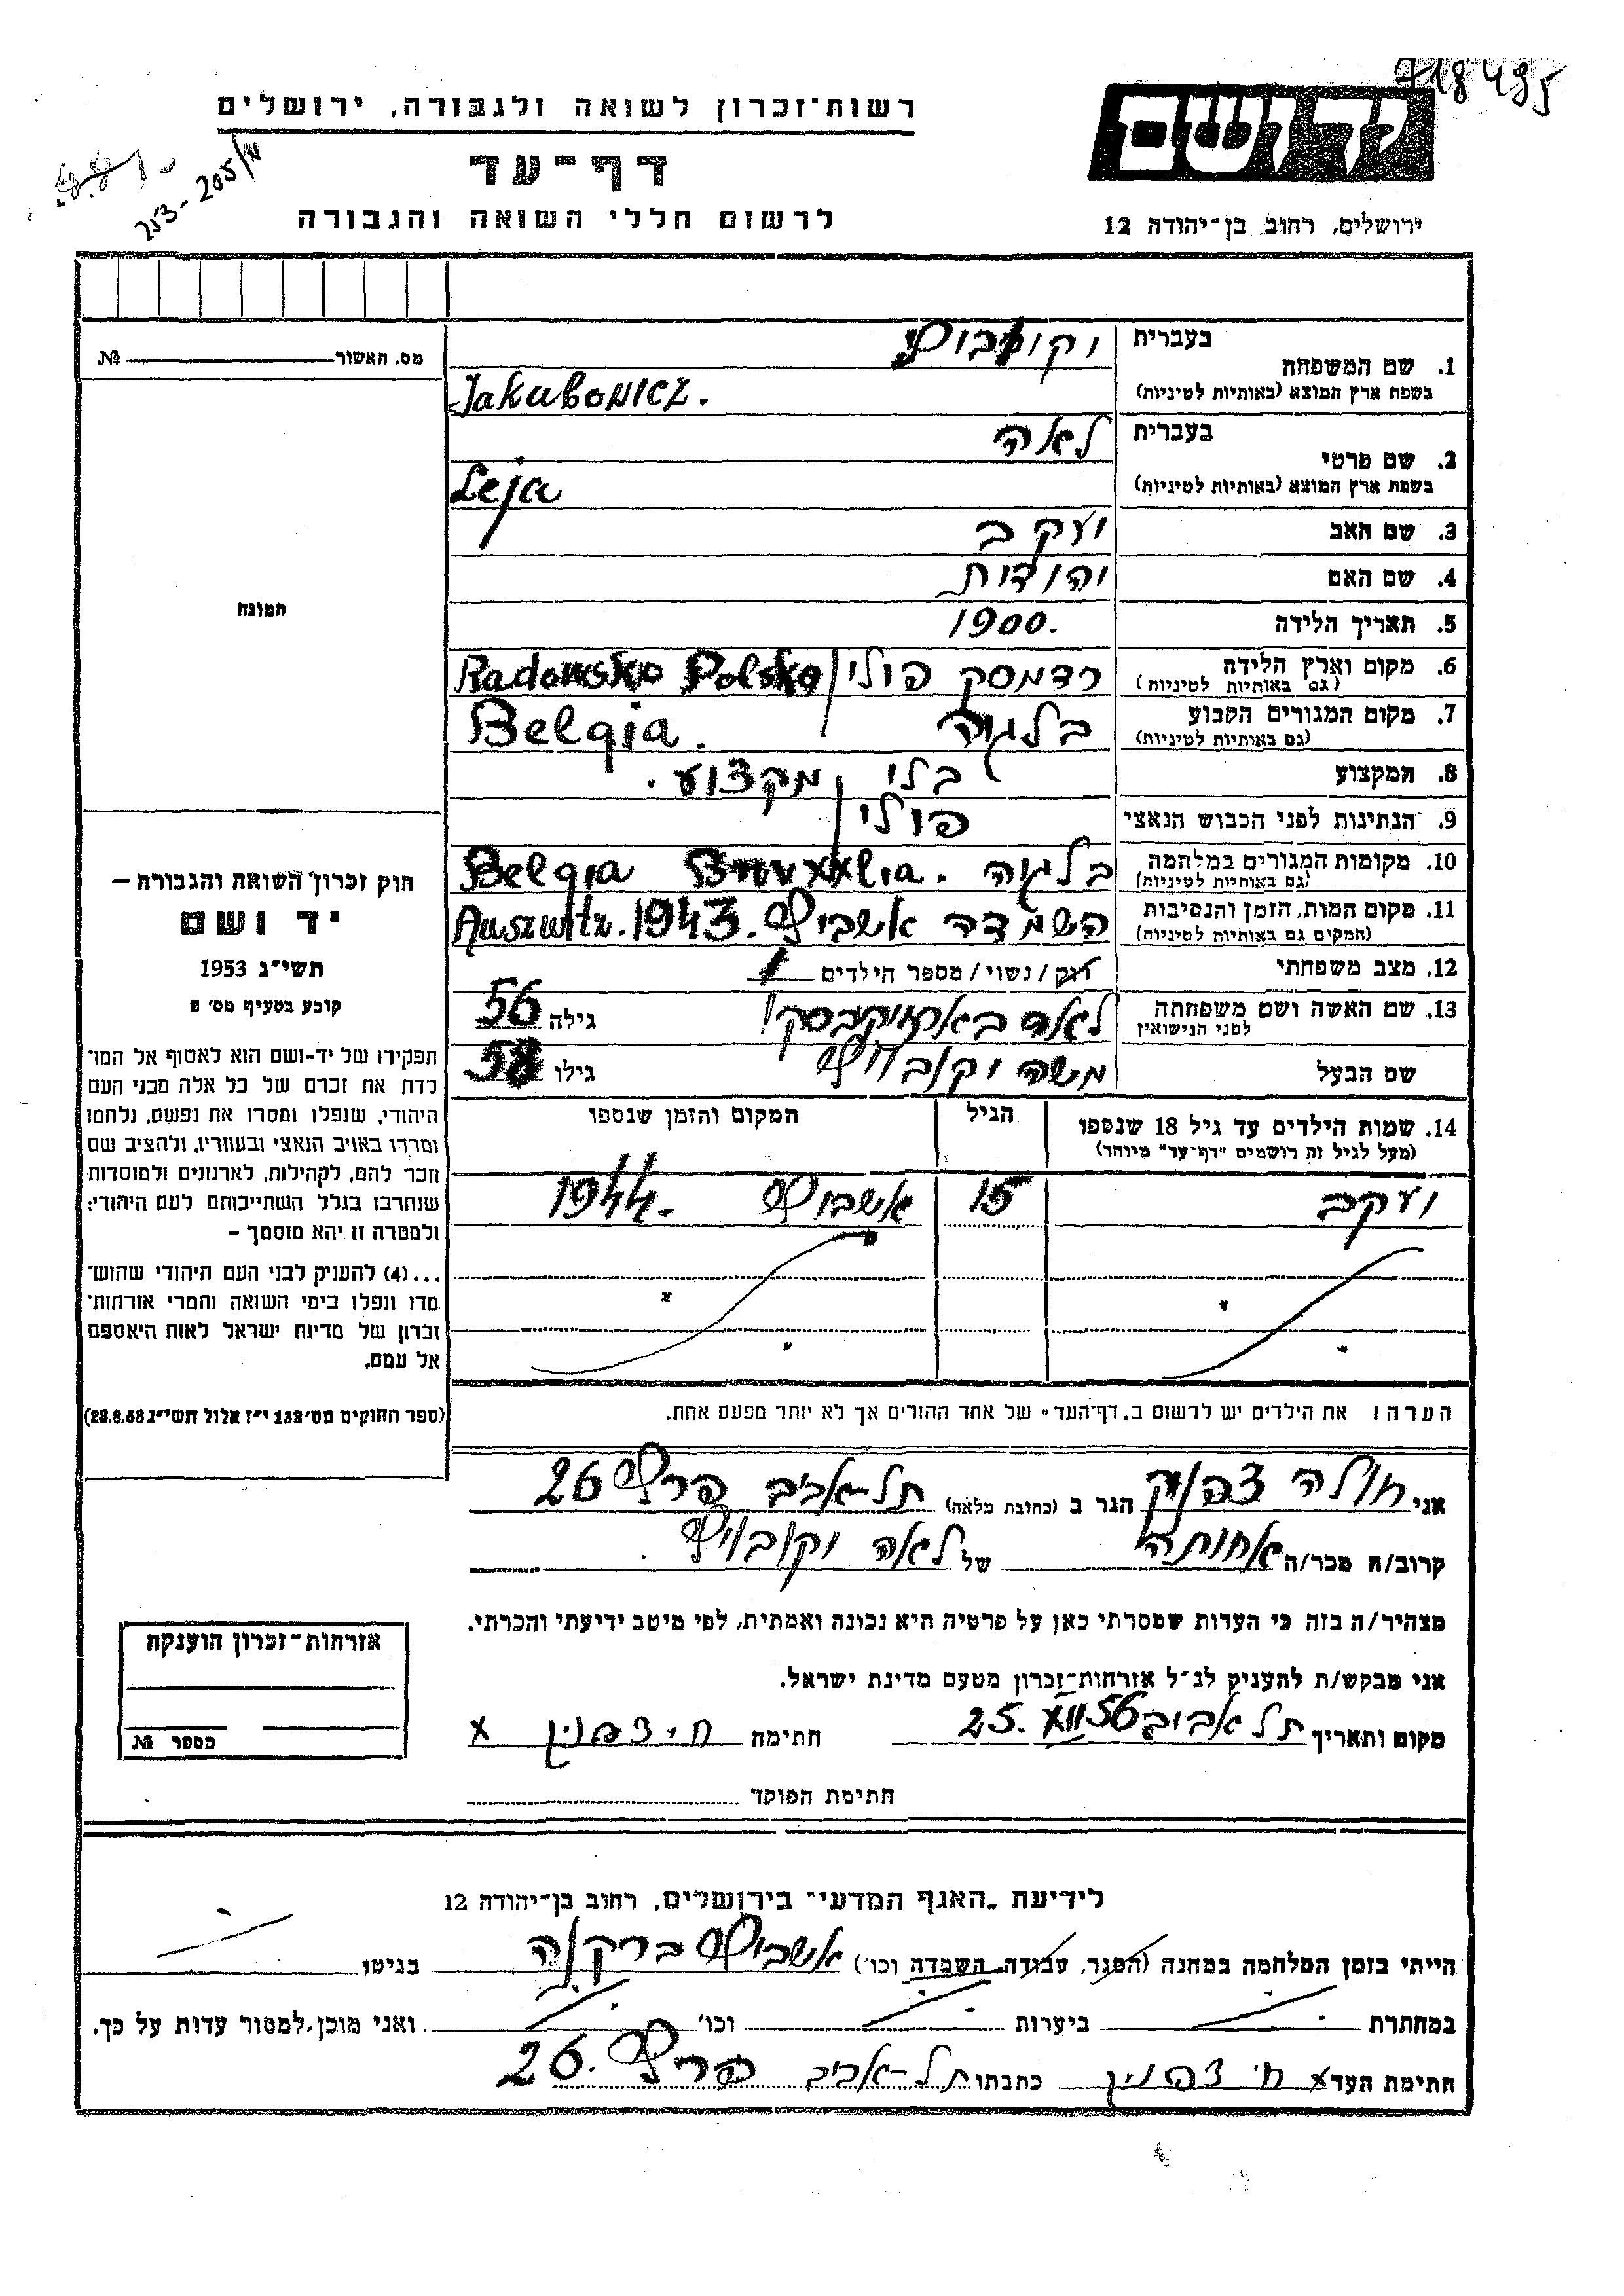 718495
רשות־זכרון לשואה ולגבורה, ירושלים
יד ושם
דף־עד
253-205/
לרשום חללי השואה והגבורה
ירושלים, רחוב בן־יהודה 12
בעברית
1. שם המשפחה
בשפת ארץ המוצא (באותיות לטיניות)
Jakubowicz.
מס. האשור № 
בעברית לאה
2. שם פרטי
בשפת ארץ המוצא (באותיות לטיניות)
Leja
3. שם האב יעקב
4. שם האם יהודית
תמונה
5. תאריך הלידה 1900.
6. מקום וארץ הלידה רדמסק פולין Radomsko Polska
(גם באותיות לטיניות)
7. מקום המגורים הקבוע בלגיה Belgia.
(גם באותיות לטיניות)
8. המקצוע בלי מקצוע.
9. הנתינות לפני הכבוש הנאצי פולין
10. מקומות המגורים במלחמה בלגיה. Belgia
(גם באותיות לטיניות)
11. מקום המות, הזמן והנסיבות השמדה אשביץ 1943. Auszwitz.
(המקום גם באותיות לטיניות)
12. מצב משפחתי רווק / נשוי / מספר הילדים 1
13. שם האשה ושם משפחתה לאה גילה 56
לפני הנישואין
שם הבעל משה יקובוביץ גילו 58
14. שמות הילדים עד גיל 18 שנספו הגיל המקום והזמן שנספו
(מעל לגיל זה רושמים "דף־עד" מיוחד)
יעקב 15 אשביץ 1944.
הערה: את הילדים יש לרשום ב„דף־העד" של אחד ההורים אך לא יותר מפעם אחת.
חוק זכרון השואה והגבורה —
יד ושם
תשי"ג 1953
קובע בסעיף מס׳ 2
תפקידו של יד-ושם הוא לאסוף אל המו־
לדת את זכרם של כל אלה מבני העם
היהודי, שנפלו ומסרו את נפשם, נלחמו
ומרדו באויב הנאצי ובעוזריו, ולהציב שם
וזכר להם, לקהילות, לארגונים ולמוסדות
שנחרבו בגלל השתייכותם לעם היהודי;
ולמטרה זו יהא מוסמך —
...(4) להעניק לבני העם היהודי שהוש־
מדו ונפלו בימי השואה והמרי אזרחות־
זכרון של מדינת ישראל לאות היאספם
אל עמם.
(ספר החוקים מס׳ 132 י"ז אלול תשי"ג 28.8.53)
אני הגר ב (כתובת מלאה) תל-אביב 26
קרוב/ה מכר/ה אחותה של לאה יקובוביץ.
מצהיר/ה בזה כי העדות שמסרתי כאן על פרטיה היא נכונה ואמתית, לפי מיטב ידיעתי והכרתי.
אני מבקש/ת להעניק לנ"ל אזרחות־זכרון מטעם מדינת ישראל.
מקום ותאריך תל אביב 25.XII 56 חתימה x
חתימת הפוקד
אזרחות־זכרון הוענקה
מספר №
לידיעת „האגף המדעי" בירושלים, רחוב בן־יהודה 12
הייתי בזמן המלחמה במחנה (הסגר, עבודה, השמדה וכו׳) אשביץ ברקנה בגיטו
במחתרת ביערות וכו׳ ואני מוכן למסור עדות על כך.
חתימת העד x כתבתו תל-אביב 26.